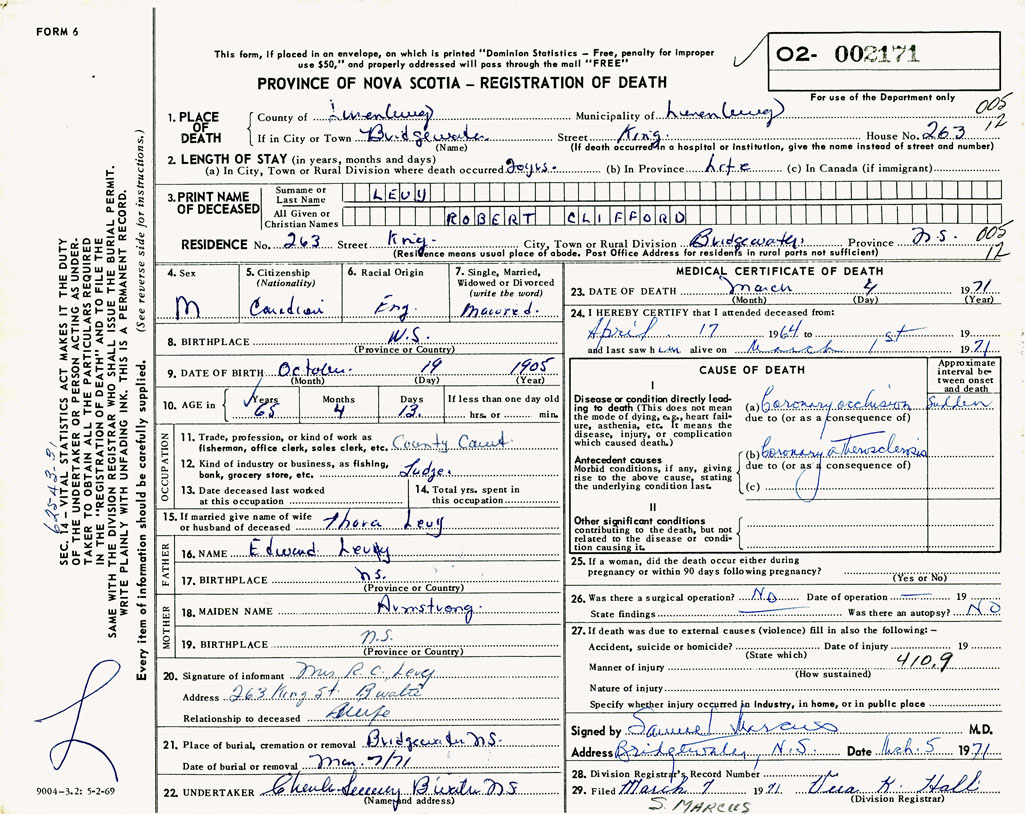 FORM 6
This form, if placed in an envelope, on which is printed "Dominion Statistics – Free, penalty for improper
use $50," and properly addressed will pass through the mail "FREE"
PROVINCE OF NOVA SCOTIA – REGISTRATION OF DEATH
02- 002171
For use of the Department only
005
12
1. PLACE OF DEATH
County of Lunenburg Municipality of Lunenburg
If in City or Town Bridgewater Street King. House No. 263
(Name) (If death occurred in a hospital or institution, give the name instead of street and number)
2. LENGTH OF STAY (in years, months and days)
(a) In City, Town or Rural Division where death occurred yrs. (b) In Province Life (c) In Canada (if immigrant)
3. PRINT NAME OF DECEASED
Surname or Last Name LEVY
All Given or Christian Names ROBERT CLIFFORD
RESIDENCE No. 263 Street King. City, Town or Rural Division Bridgewater Province N.S. 005
12
(Residence means usual place of abode. Post Office Address for residents in rural parts not sufficient)
4. Sex
M
5. Citizenship
(Nationality)
Canadian
6. Racial Origin
Eng.
7. Single, Married,
Widowed or Divorced
(write the word)
Married.
8. BIRTHPLACE N.S.
(Province or Country)
9. DATE OF BIRTH October 19 1905
(Month) (Day) (Year)
10. AGE in Years Months Days If less than one day old
65 4 13. hrs. or min.
OCCUPATION
11. Trade, profession, or kind of work as
fisherman, office clerk, sales clerk, etc. County Court
12. Kind of industry or business, as fishing,
bank, grocery store, etc. Judge.
13. Date deceased last worked
at this occupation
14. Total yrs. spent in
this occupation
15. If married give name of wife
or husband of deceased Thora Levy
FATHER
16. NAME Edward Levy
17. BIRTHPLACE N.S.
(Province or Country)
MOTHER
18. MAIDEN NAME Armstrong.
19. BIRTHPLACE N.S.
(Province or Country)
20. Signature of informant Mrs R. C. Levy
Address 263 King St.
Relationship to deceased Wife
21. Place of burial, cremation or removal Bridgewater N.S.
Date of burial or removal Mar. 7/71
22. UNDERTAKER N.S.
(Name and address)
MEDICAL CERTIFICATE OF DEATH
23. DATE OF DEATH March 4 1971
(Month) (Day) (Year)
24. I HEREBY CERTIFY that I attended deceased from:
April 17 1964 to 19
and last saw him alive on March 1st 1971
CAUSE OF DEATH
Approximate
interval be-
tween onset
and death
I
Disease or condition directly lead-
ing to death (This does not mean
the mode of dying, e.g., heart fail-
ure, asthenia, etc. It means the
disease, injury, or complication
which caused death.)
(a) Coronary occlusion Sudden
due to (or as a consequence of)
Antecedent causes
Morbid conditions, if any, giving
rise to the above cause, stating
the underlying condition last.
(b) Coronary atherosclerosis
due to (or as a consequence of)
(c)
II
Other significant conditions
contributing to the death, but not
related to the disease or condi-
tion causing it.
25. If a woman, did the death occur either during
pregnancy or within 90 days following pregnancy?
(Yes or No)
26. Was there a surgical operation? NO Date of operation — 19
State findings — Was there an autopsy? NO
27. If death was due to external causes (violence) fill in also the following: –
Accident, suicide or homicide? Date of injury 19
(State which)
Manner of injury 410.9
(How sustained)
Nature of injury
Specify whether injury occurred in industry, in home, or in public place
Signed by Samuel Marcus M.D.
Address Bridgewater, N.S. Date Mch. 5 1971
28. Division Registrar's Record Number
29. Filed March 7 1971 Vera K. Hall
(Division Registrar)
S. MARCUS
625-43-31
SEC. 14 – VITAL STATISTICS ACT MAKES IT THE DUTY
OF THE UNDERTAKER OR PERSON ACTING AS UNDER-
TAKER TO OBTAIN ALL THE PARTICULARS REQUIRED
IN THE "REGISTRATION OF DEATH" AND TO FILE THE
SAME WITH THE DIVISION REGISTRAR WHO SHALL ISSUE THE BURIAL PERMIT.
WRITE PLAINLY WITH UNFADING INK. THIS IS A PERMANENT RECORD.
Every item of information should be carefully supplied. (See reverse side for instructions.)
9004-3.2: 5-2-69